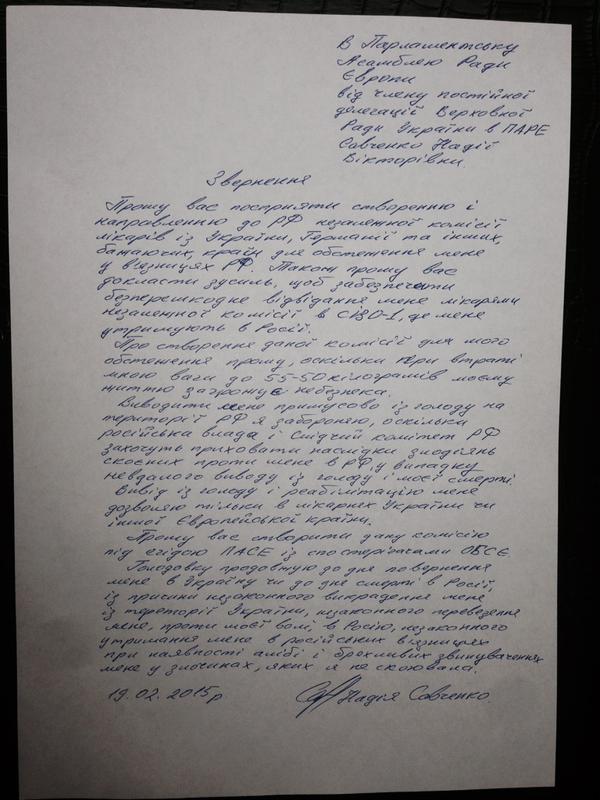 В Парламентську
Асамблею Ради
Європи
від члену постійної
делегації Верховної
Ради України в ПАРЕ
Савченко Надії
Вікторівни.
Звернення
Прошу вас посприяти створенню і
направленню до РФ незалежної комісії
лікарів із України, Германії та інших,
бажаючих, країн для обстеження мене
у в'язницях РФ. Також прошу вас
докласти зусиль, щоб забезпечити
безперешкодне відвідання мене лікарями
незалежної комісії в СІЗО-1, де мене
утримують в Росії.
Про створення даної комісії для мого
обстеження прошу, оскільки при втраті
мною ваги до 55-50 кілограмів моєму
життю загрожує небезпека.
Виводити мене примусово із голоду на
території РФ я забороняю, оскільки
російська влада і Слідчий комітет РФ
захочуть приховати наслідки злодіянь
скоєних проти мене в РФ, у випадку
невдалого виводу із голоду і моєї смерті.
Вивід із голоду і реабілітацію мене
дозволяю тільки в лікарнях України чи
іншої Європейської країни.
Прошу вас створити дану комісію
під егідою ПАСЕ із спостерігачами ОБСЄ.
Голодовку продовжую до дня повернення
мене в Україну чи до дня смерті в Росії,
із причини незаконного викрадення мене
із території України, незаконного перевезення
мене, проти моєї волі в Росію, незаконного
утримання мене в російських в'язницях
при наявності алібі і брехливих звинуваченнях
мене у злочинах, яких я не скоювала.
19.02.2015р Надія Савченко